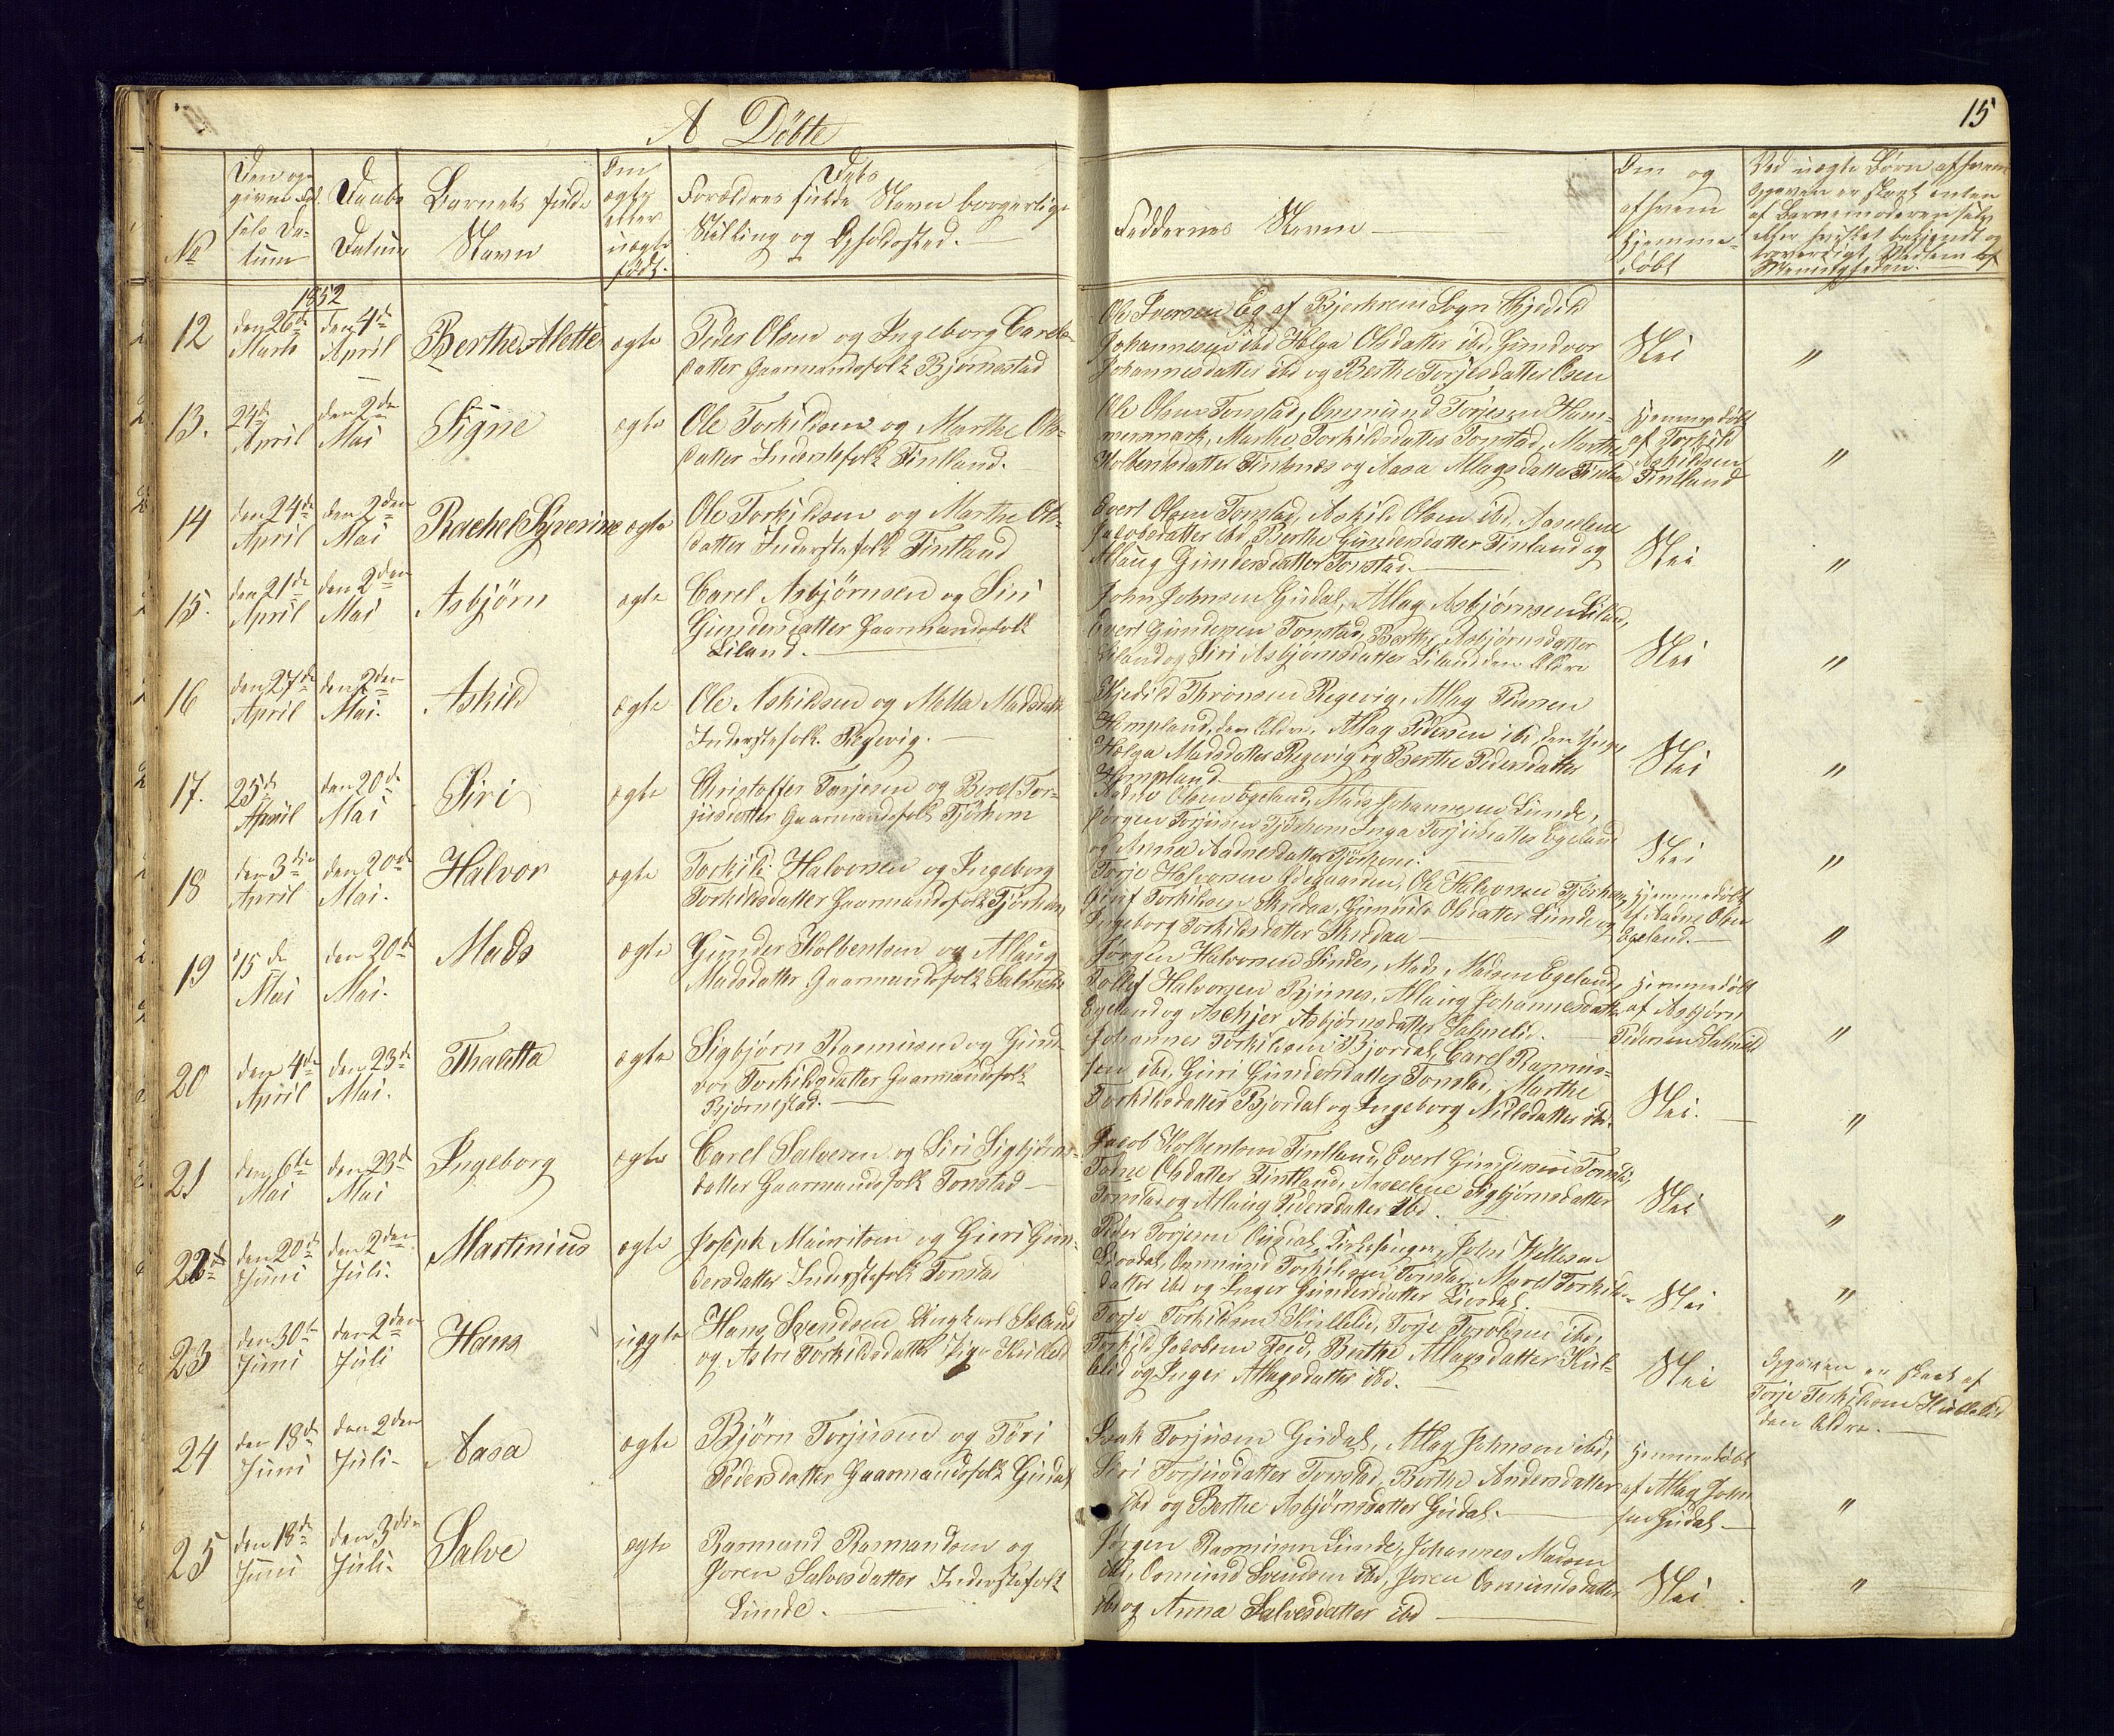 15
A Döbte
No
Den op-
givne Fød-
sels Da-
tum
Daabs
Datum
Barnets fulde
Navn
Om
ægte
eller
uægte
født.
Dets
Forældres fulde Navn borgerlige
Stilling og Opholdsted.
Faddernes Navne
Om og
af hvem
hjemme-
døbt
Ved uægte Børn af hvem
Opgaven er skeet enten
af Barnemoderen selv
eller hvilket bekjendt og
troværdigt Medlem af
Menigheden.
1852
12
den 26de
Marts
den 4de
April
Berthe Alette
ægte
Peder Olsen og Ingeborg Carels-
datter Gaarmandsfolk Bjørnestad
Ole Iversen Eg af Bjerkrem Sogn Kjedild
Johannesen ibd Helga Olsdatter ibd, Gundvor
Johannesdatter ibd og Berthe Torjesdatter Osen
Nei
"
13.
24de
April
den 2den
Mai
Signe
ægte
Ole Torkildsen og Marthe Ols-
datter Inderstefolk Tintland.
Ole Olsen Tonstad, Ommund Torjesen Ham-
mermark, Marthe Torkildsdatter Tonstad, Marthe
Kolbentsdatter Tintnæs og Aasa Atlagsdatter
Hjemmedøbt
af Torkild
Askildsen
Tintland
"
14
den 24de
April
den 2den
Mai
Rachel Syverine
ægte
Ole Torkildsen og Marthe Ols-
datter Inderstefolk Tintland
Evert Olsen Tonstad, Askild Olsen ibd, Aaselene
Jacobsdatter ibd, Berthe Gundersdatter Tinland og
Atlaug Gundersdatter Tonstad.
Nei
"
15.
den 21de
April
den 2den
Mai
Asbjørn
ægte
Carel Asbjørnsen og Siri
Gundersdatter Gaarmandsfolk
Liland.
John Johnsen Gudal, Atlag Asbjørnsen Liland,
Evert Gundersen Tonstad, Berthe Asbjørnsdatter
Liland og Siri Asbjørnsdatter Liland den Ældre
Nei
"
16
den 27de
April
den 2den
Mai.
Askild
ægte
Ole Askildsen og Mette Madsdatt
Inderstefolk Regevig.
Kjedild Thronsen Regevig, Atlag Pedersen
Hompland, den Ældre, Atlag Pedersen ibd den Yngre
Helga Madsdatter Regevig og Berthe Pedersdatter
Hompland
Nei
"
17.
25de
April
den 20de
Mai
Siri
ægte
Christoffer Torjesen og Beret Tor-
jusdatter Gaarmandsfolk Tjørhom
Aadne Olsen Egeland, Mads Johannesen Lunde,
Jørgen Torjusen Tjørhom Inga Torjusdatter Egeland
og Anna Aadnesdatter Tjørhom.
Nei
"
18
den 3die
April
den 20de
Mai.
Halvor
ægte
Torkild Halvorsen og Ingeborg
Torkildsdatter Gaarmandsfolk Tjørhom
Torje Halvorsen Ødegaarden, Ole Halvorsen Tjørhom
Torkildsen Skredaa, Gunnild Olsdatter Lunde og
Ingeborg Torkildsdatter Skredaa
Hjemmedøbt
af Aadne Olsen
Egeland.
"
19
15de
Mai
den 20de
Mai.
Mads
ægte
Gunder Kolbentsen og Atlaug
Madsdatter Gaarmandsfolk Salmelid
Jørgen Halvorsen Sinnes, Mads Nilsen Egeland,
Tollef Halvorsen Rjunes, Atlaug Johannesdatter
Egeland og Aschjer Asbjørnsdatter Salmelid.
Hjemmedøbt
af Asbjørn
Pedersen Salmelid
"
20
den 4de
April
den 23de
Mai.
Thaletta
ægte
Sigbjørn Rasmusen og Gund-
vor Torkildsdatter Gaarmandsfolk
Bjørnestad.
Johannes Torkildsen Bjordal, Carel Rasmus-
sen ibd, Guri Gundersdatter Tonstad, Marthe
Torkildsdatter Bjordal og Ingeborg Nilsdatter ibd.
Nei.
"
21
den 6te
Mai
den 23de
Mai
Ingeborg
ægte
Carel Salvesen og Siri Sigbjørns-
datter Gaarmandsfolk Tonstad
Jacob Kolbentsen Tintland, Evert Gundersen Tonstad,
Tone Olsdatter Tintland, Aaselene Sigbjørnsdatter
Tonstad og Atlaug Pedersdatter ibd.
Nei
"
22
den 20de
Juni
den 2den
Juli.
Martinius
ægte
Joseph Mauritsen og Guri Gun-
dersdatter Inderstefolk Tonstad
Peder Torjesen Kirkesanger, John
Liosdal, Ommund Torkildsen Tonstad, Maret Torkilds-
datter ibd og Inger Gundersdatter Liosdal.
Nei
"
23
den 30te
Juni
den 2den
Juli
Hans
uægte
Hans Svendsen Ungkarl
og Astri Torkildsdatter Pige
Torje Torkildsen, Torje Torildsen ibd,
Torkild Jacobsen Feid, Berthe Atlagsdatter
og Inger Atlagsdatter ibd.
Nei
Opgaven er skeet af
Torje Torkildsen
den Ældre.
24
den 18de
Juni
den 2den
Juli.
Aasa
ægte
Bjørn Torjusen og Tøri
Pedersdatter Gaarmandsfolk Gudal
Isak Torjusen Gudal, Atlag Johnsen ibd,
Siri Torjusdatter Tonstad, Berthe Andersdatter
ibd og Berthe Asbjørnsdatter Gudal.
Hjemmedøbt
af Atlag John-
sen Gudal
"
25
den 18de
Juni
den 3die
Juli.
Salve
ægte
Rasmund Rasmundsen og
Joren Salvesdatter Inderstefolk
Lunde.
Jørgen Rasmusen Lunde, Johannes Madsen
ibd, Osmund Svendsen ibd, Joren Osmundsdatter
ibd og Anna Salvesdatter ibd
Nei
"